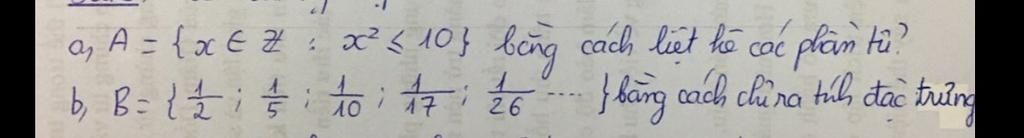 a, A = {x ∈ Z : x² ≤ 10} bằng cách liệt kê các phần tử?
b, B = {1/2 ; 1/5 ; 1/10 ; 1/17 ; 1/26 ....} bằng cách chỉ ra tính đặc trưng